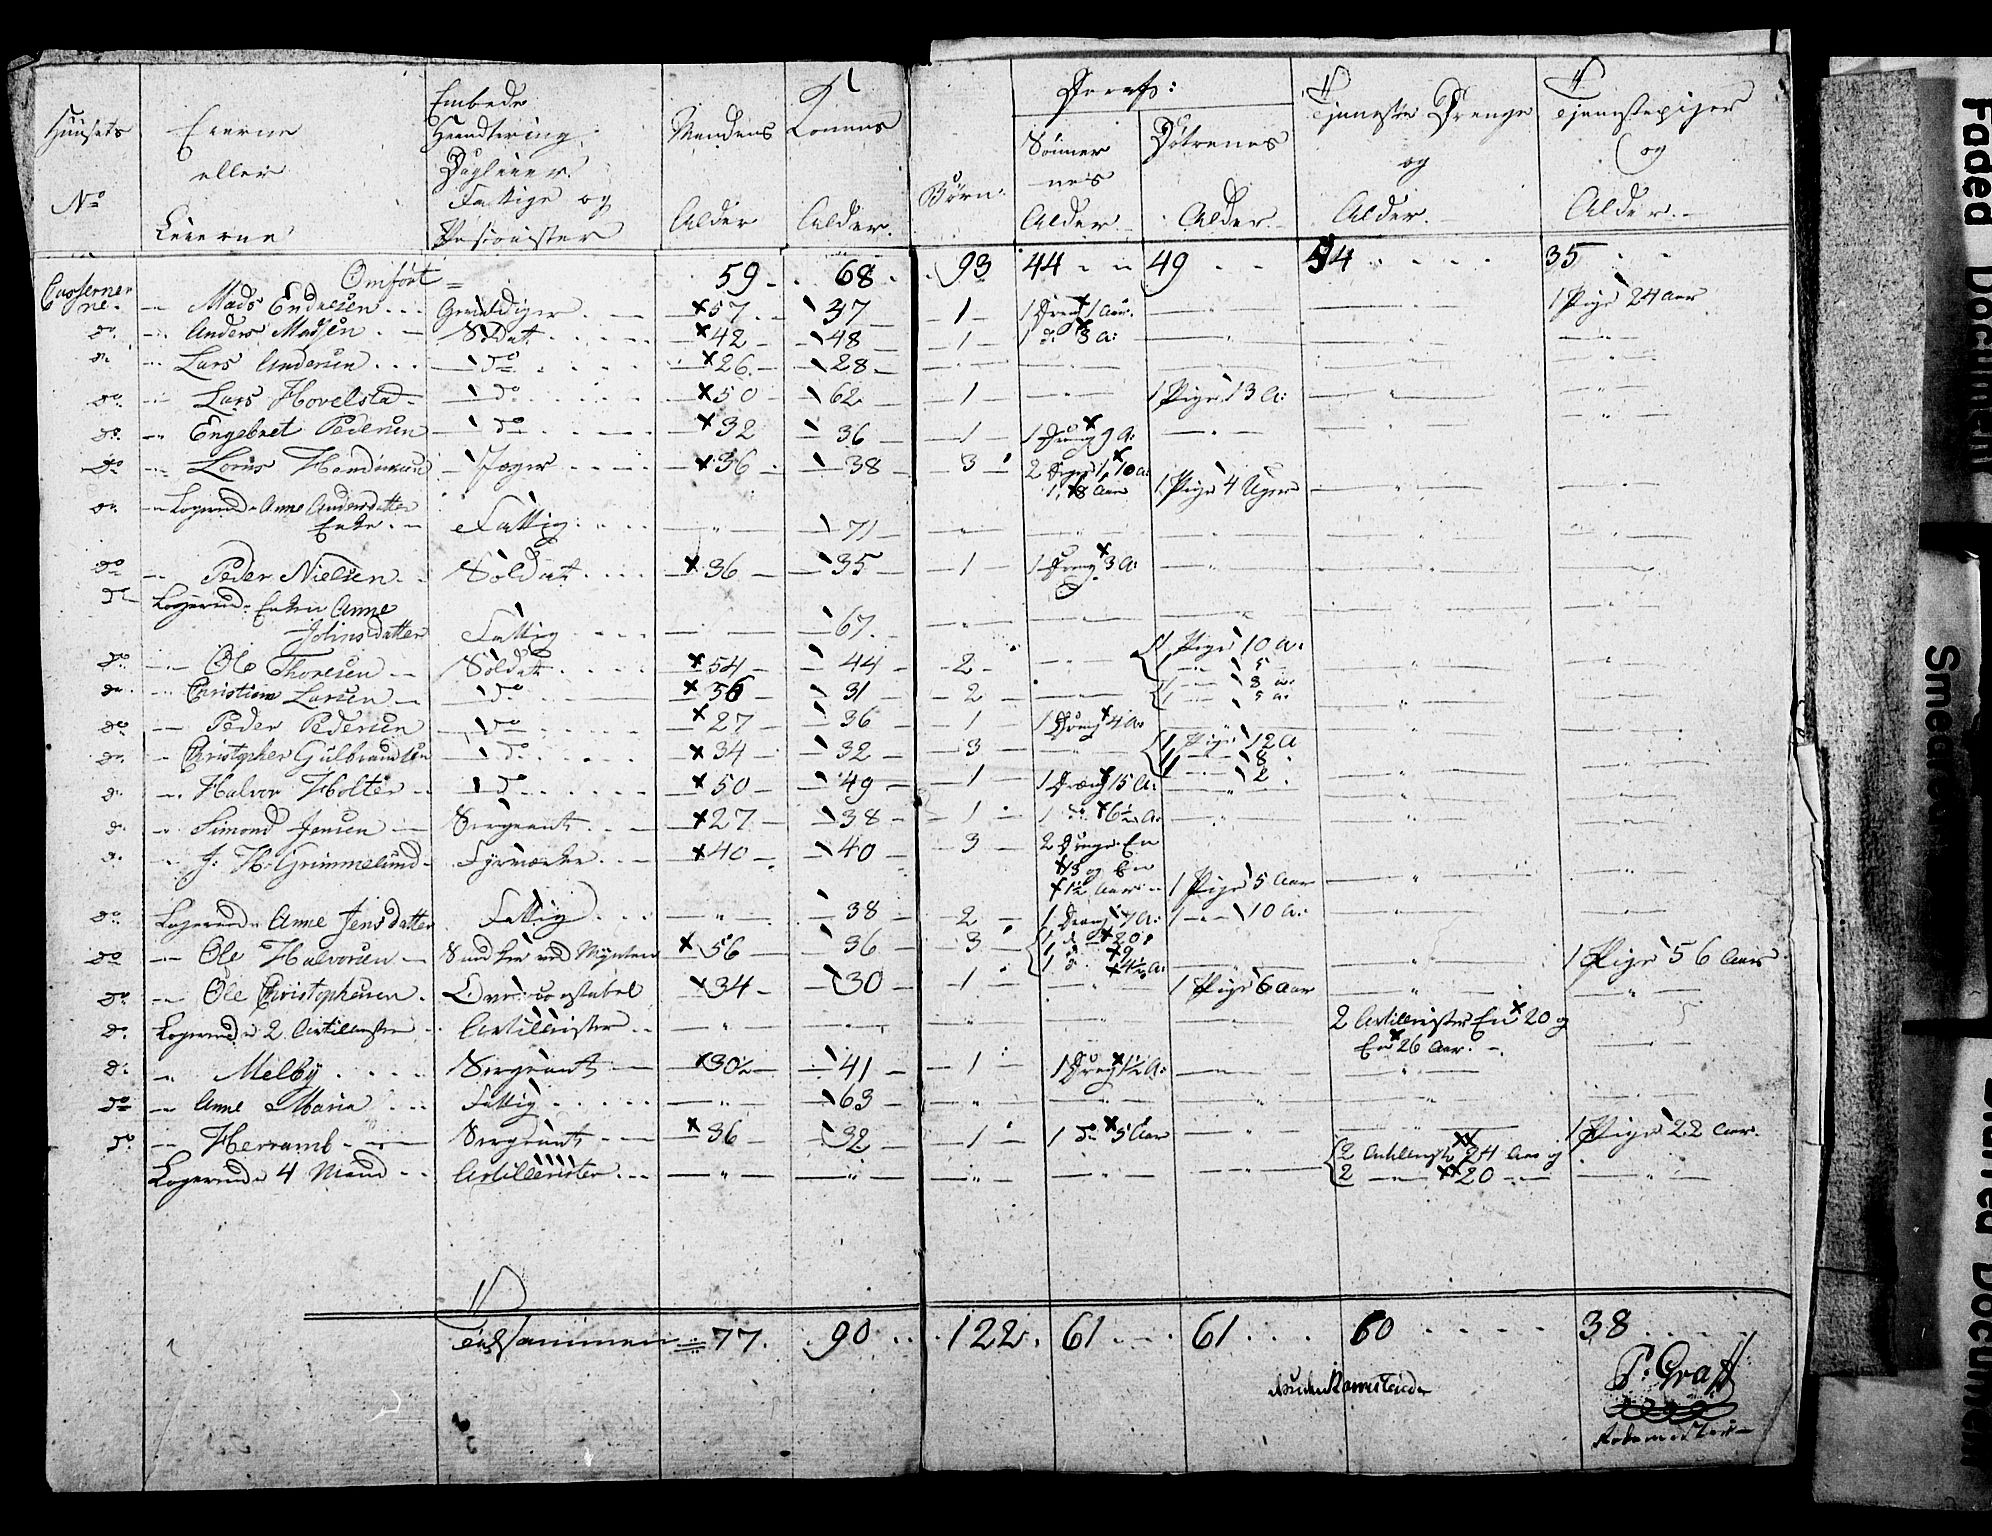 Huusets No | Eierne eller Leierne | Embede Handtering Dagleier Fattige og Pensionister | Mandens Alder | Konens Alder | Børn | Deraf: Sönnernes Alder | Døtrenes Alder | Tjeneste Drenge og Alder | Tjenestepiger og Alder
Omført | 59 | 68 | 93 | 44 | 49 | 54 | 35
Casserner ne. | Mads Endresen | Gevaldiger | 57 | 37 | 1 | 1 Dreng 1 Aar | 1 Pige 24 Aar
do | Anders Madsen | Soldat | 42 | 48 | 1 | 1 do 3 A:
do | Lars Andersen | do | 26 | 28
do | Lars Hovelstad | do | 50 | 62 | 1 | 1 Pige 13 A:
do | Engebret Pedersen | do | 32 | 36 | 1 | 1 Dreng 9 A:
do | Hendricsen | Jæger | 36 | 38 | 3 | 2 Drenge 1, 10 A: 1, 8 Aar | 1 Pige 4 Uger
do | Logerende Anne Andersdatter Enke | Fattig | 71
do | Peder Nielsen | Soldat | 36 | 35 | 1 | 1 Dreng 3 A:
do | Logerende Enken Anne Johnsdatter | Fattig | 67
do | Ole Thoresen | Soldat | 54 | 44 | 2 | 1 Pige 10 A: 1 5
do | Christian Larsen | do | 56 | 31 | 2 | 1 8 a: 1 5 a:
do | Peder Pedersen | do | 27 | 36 | 1 | 1 Dreng 4 A:
do | Christopher Gulbrandsen | do | 34 | 32 | 3 | 1 Pige 12 A 1 8 1 2
do | Halvor Holter | do | 50 | 49 | 1 | 1 Dreng 15 A:
do | Simond Jensen | Sergeant | 27 | 38 | 1 | 1 do 6½ A:
do | J. H. Grimmelund | Fyrværker | 40 | 40 | 3 | 2 Drenge En 13 og En 1½ Aar | 1 Pige 5 Aar
do | Logerende Anne Jensdatter | Fattig | 38 | 2 | 1 Dreng 7 A: | 1 10 A:
do | Ole Halvorsen | ved Mynten | 56 | 36 | 3 | 1 d 20 1 d 9 1 d 4½ A: | 1 Pige 56 Aar
do | Ole Christophersen | Overconstabel | 34 | 30 | 1 | 1 Pige 6 Aar
do | Logerende 2 Artillerister | Artillerister | 2 Artillerister En 20 og En 26 Aar.
do | Melby | Sergeant | 30½ | 41 | 1 | 1 Dreng 1½ A:
do | Anne Maria | Fattig | 63
do | Herramb | Sergeant | 36 | 32 | 1 | 1 do 5 Aar | 1 Pige 22 Aar.
Logerende 4 Mand | Artillerister | 2 Artillerister 24 Aar og 2 20
Tilsammen | 77. | 90 | 122. | 61 | 61 | 60 | 38
P: Graff
Rodemester
Faded Document
Smeared
Blurred Document